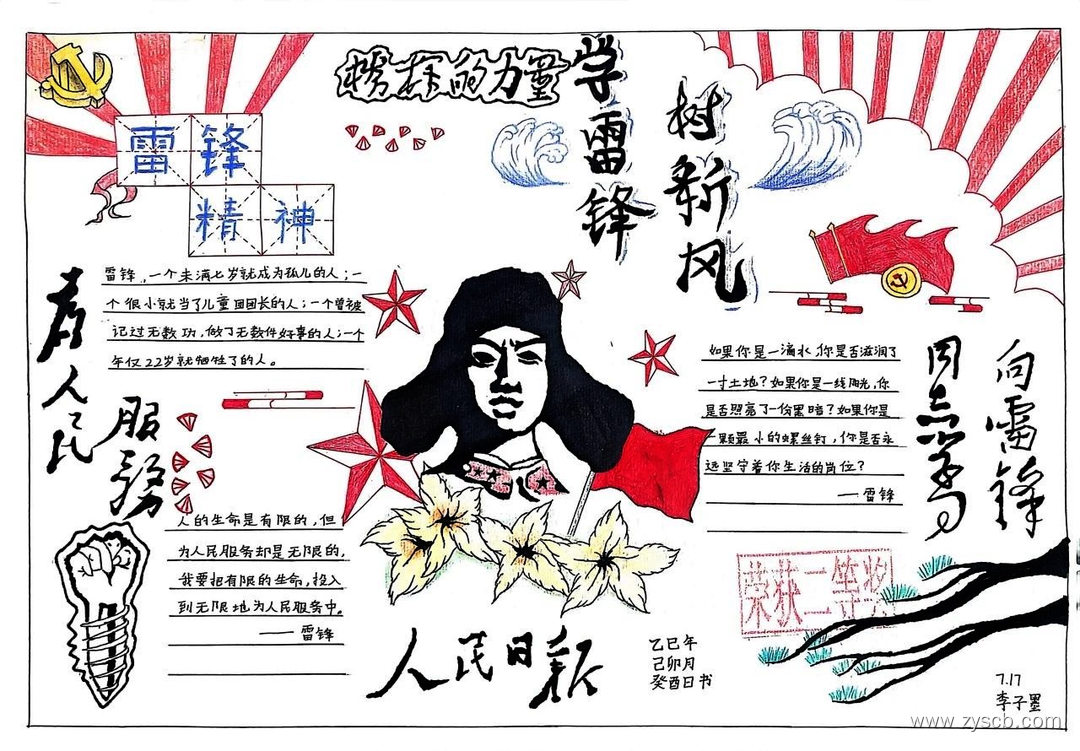 榜样的力量
学雷锋
树新风
雷锋
精神
雷锋，一个未满七岁就成为孤儿的人；一
个很小就当了儿童团团长的人；一个曾被
记过无数功，做了无数件好事的人；一个
年仅22岁就牺牲了的人。
为人民
服务
人的生命是有限的，但
为人民服务却是无限的，
我要把有限的生命，投入
到无限地为人民服务中。
——雷锋
如果你是一滴水，你是否滋润了
一寸土地？如果你是一线阳光，你
是否照亮了一份黑暗？如果你是
一颗最小的螺丝钉，你是否永
远坚守着你生活的岗位？
——雷锋
向雷锋
同志学习
人民日报
乙巳年
己卯月
癸酉日书
荣获二等奖
7.17
李子墨
www.zyscb.com